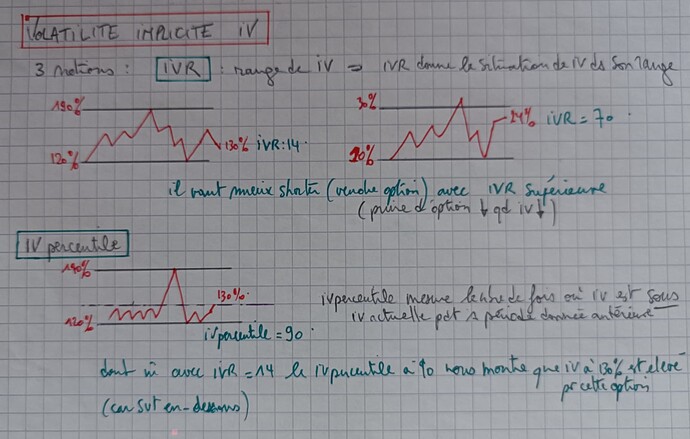 VOLATILITE IMPLICITE IV
3 notions : IVR : range de iV ⇒ IVR donne la situation de iV ds son range
190%
120%
130% iVR:14
30%
10%
24% iVR = 70
il vaut mieux shorter (vendre option) avec IVR Supérieure
(prime d'option ↓ qd iv ↓)
IV percentile
190%
120%
130%
iVpercentile = 90
iVpercentile mesure le nbre de fois où iV est sous
iV actuelle pdt 1 période donnée antérieure
dont m̂ avec iVR = 14 le iVpercentile à 90 nous montre que iV à 130% est élevé
pr cette option
(car svt en-dessous)